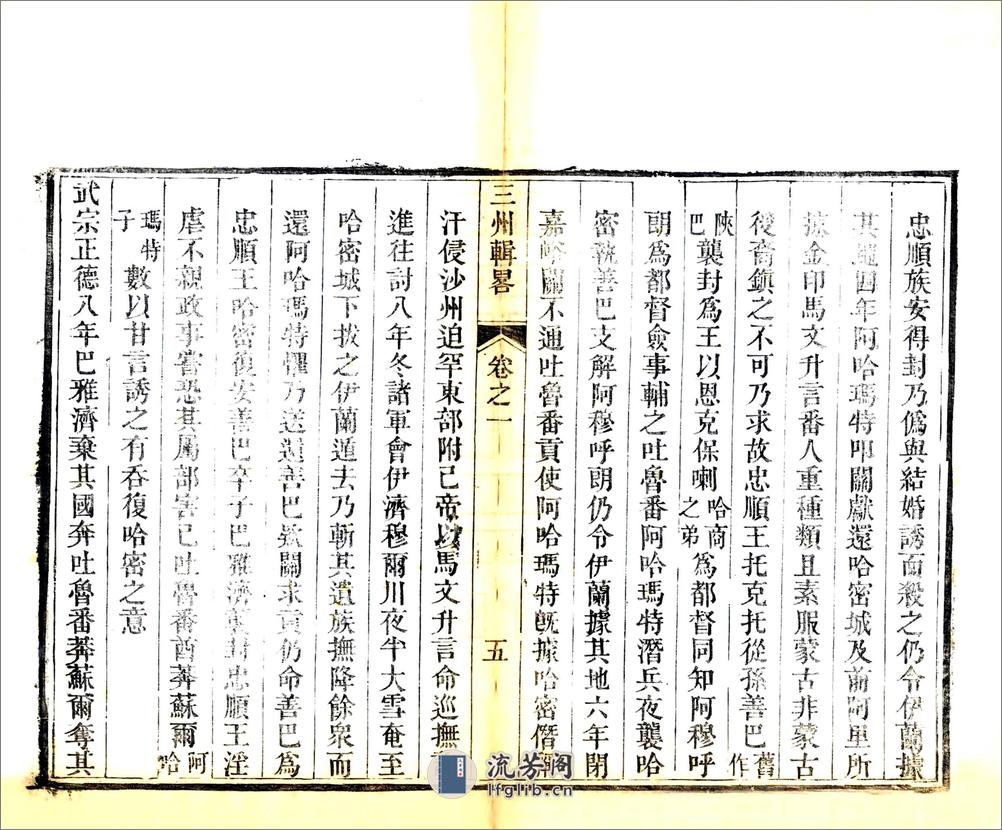 忠順族安得封乃僞與結婚誘而殺之仍令伊蘭據
其地四年阿哈瑪特叩關獻還哈密城及前阿里所
掠金印馬文升言番人重種類且素服蒙古非蒙古
後裔鎮之不可乃求故忠順王托克托從孫善巴舊作
陝巴襲封爲王以恩克保喇哈商之弟爲都督同知阿穆呼
朗爲都督僉事輔之吐魯番阿哈瑪特潛兵夜襲哈
密執善巴支解阿穆呼朗仍令伊蘭據其地六年閉
嘉峪關不通吐魯番貢使阿哈瑪特旣據哈密僭稱
三州輯畧 卷之一 五
汗侵沙州迫罕東部附己帝以馬文升言命巡撫
進往討八年冬諸軍會伊濟穆爾川夜半大雪奄至
哈密城下拔之伊蘭遁去乃斬其遺族撫降餘衆而
還阿哈瑪特懼乃送還善巴欵關求貢仍命善巴爲
忠順王哈密復安善巴卒子巴雅濟襲封忠順王淫
虐不親政事嘗恐其屬部害己吐魯番酋莽蘇爾阿哈
瑪特子數以甘言誘之有吞復哈密之意
武宗正德八年巴雅濟棄其國奔吐魯番莽蘇爾奪其
流芳阁
lfglib.cn